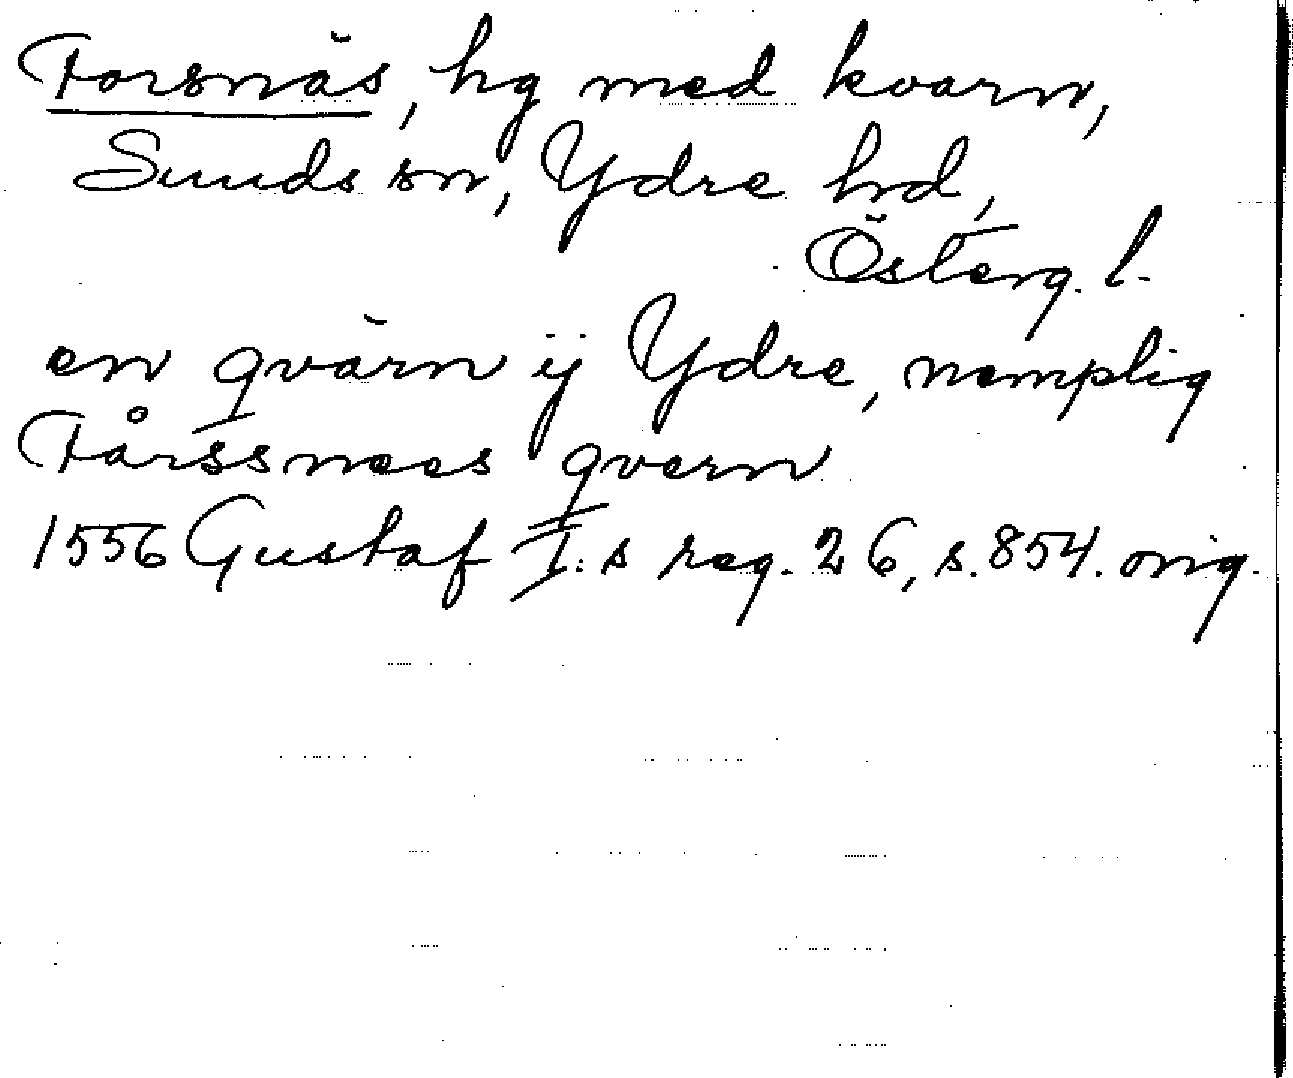 Forsnäs, hg med kvarn,
Sunds sn, Ydre hd,
Österg. l.
en qvarn ij Ydre, nemplig
Fårssnees qvern
1556 Gustaf I:s reg. 26, s. 854. orig.